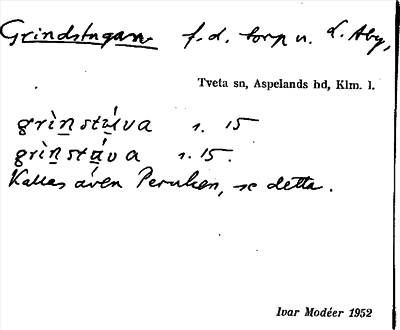 Grindstugan f.d. torp u. L. Aby,
Tveta sn, Aspelands hd, Klm. l.
grìn̲stú̲va s. 15
grìn̲stá̲va s. 15.
Kallas även Peruken, se detta.
Ivar Modéer 1952